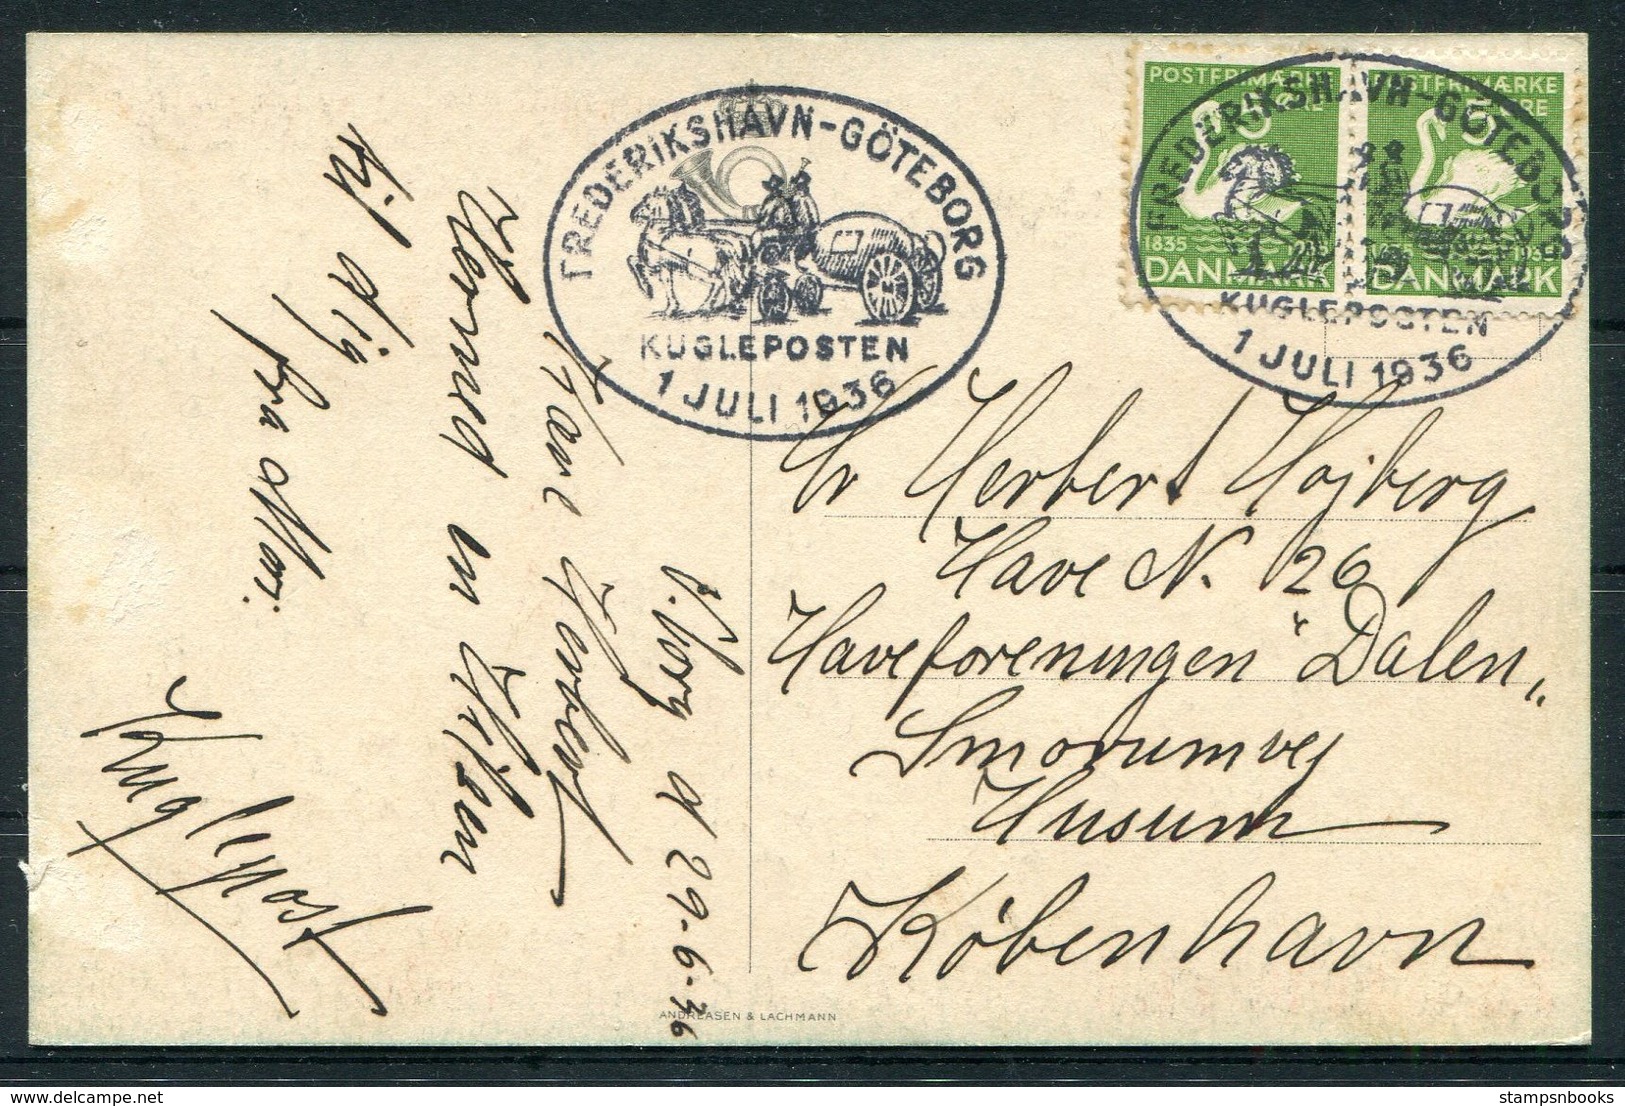 FREDERIKSHAVN-GÖTEBORG
KUGLEPOSTEN
1 JULI 1936
POSTFRIMÆRKE
1835
DANMARK
POSTFRIMÆRKE
ØRE
DANMARK
FREDERIKSHAVN-GÖTEBORG
KUGLEPOSTEN
1 JULI 1936
Hr Herbert Højberg
Have N. 26
Haveforeningen "Dalen"
Smorumvej
Husum
København
d 29-6-36
Kære Herbert
Hermed en Hilsen
til dig
fra Mor.
Kuglepost
ANDREASEN & LACHMANN
stampsnbooks
delcampe.net